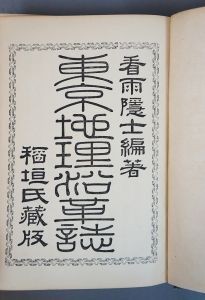 看雨隱士編著
東京地理沿革誌
稲垣氏藏版